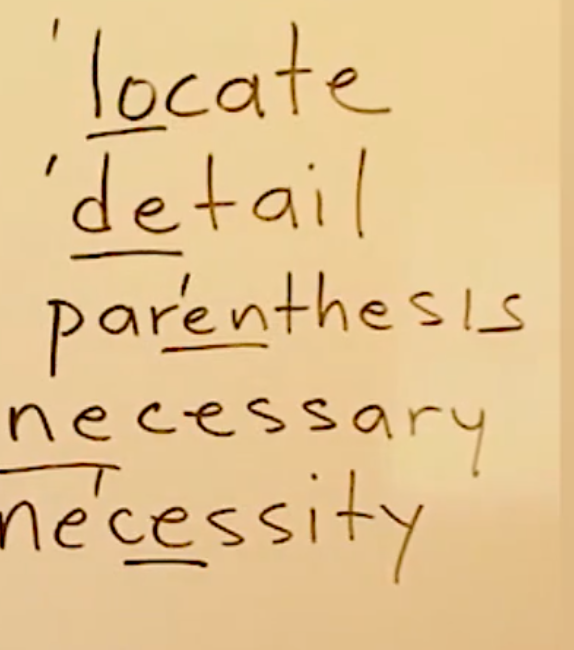 'locate
'detail
par'enthesis
necessary
ne'cessity